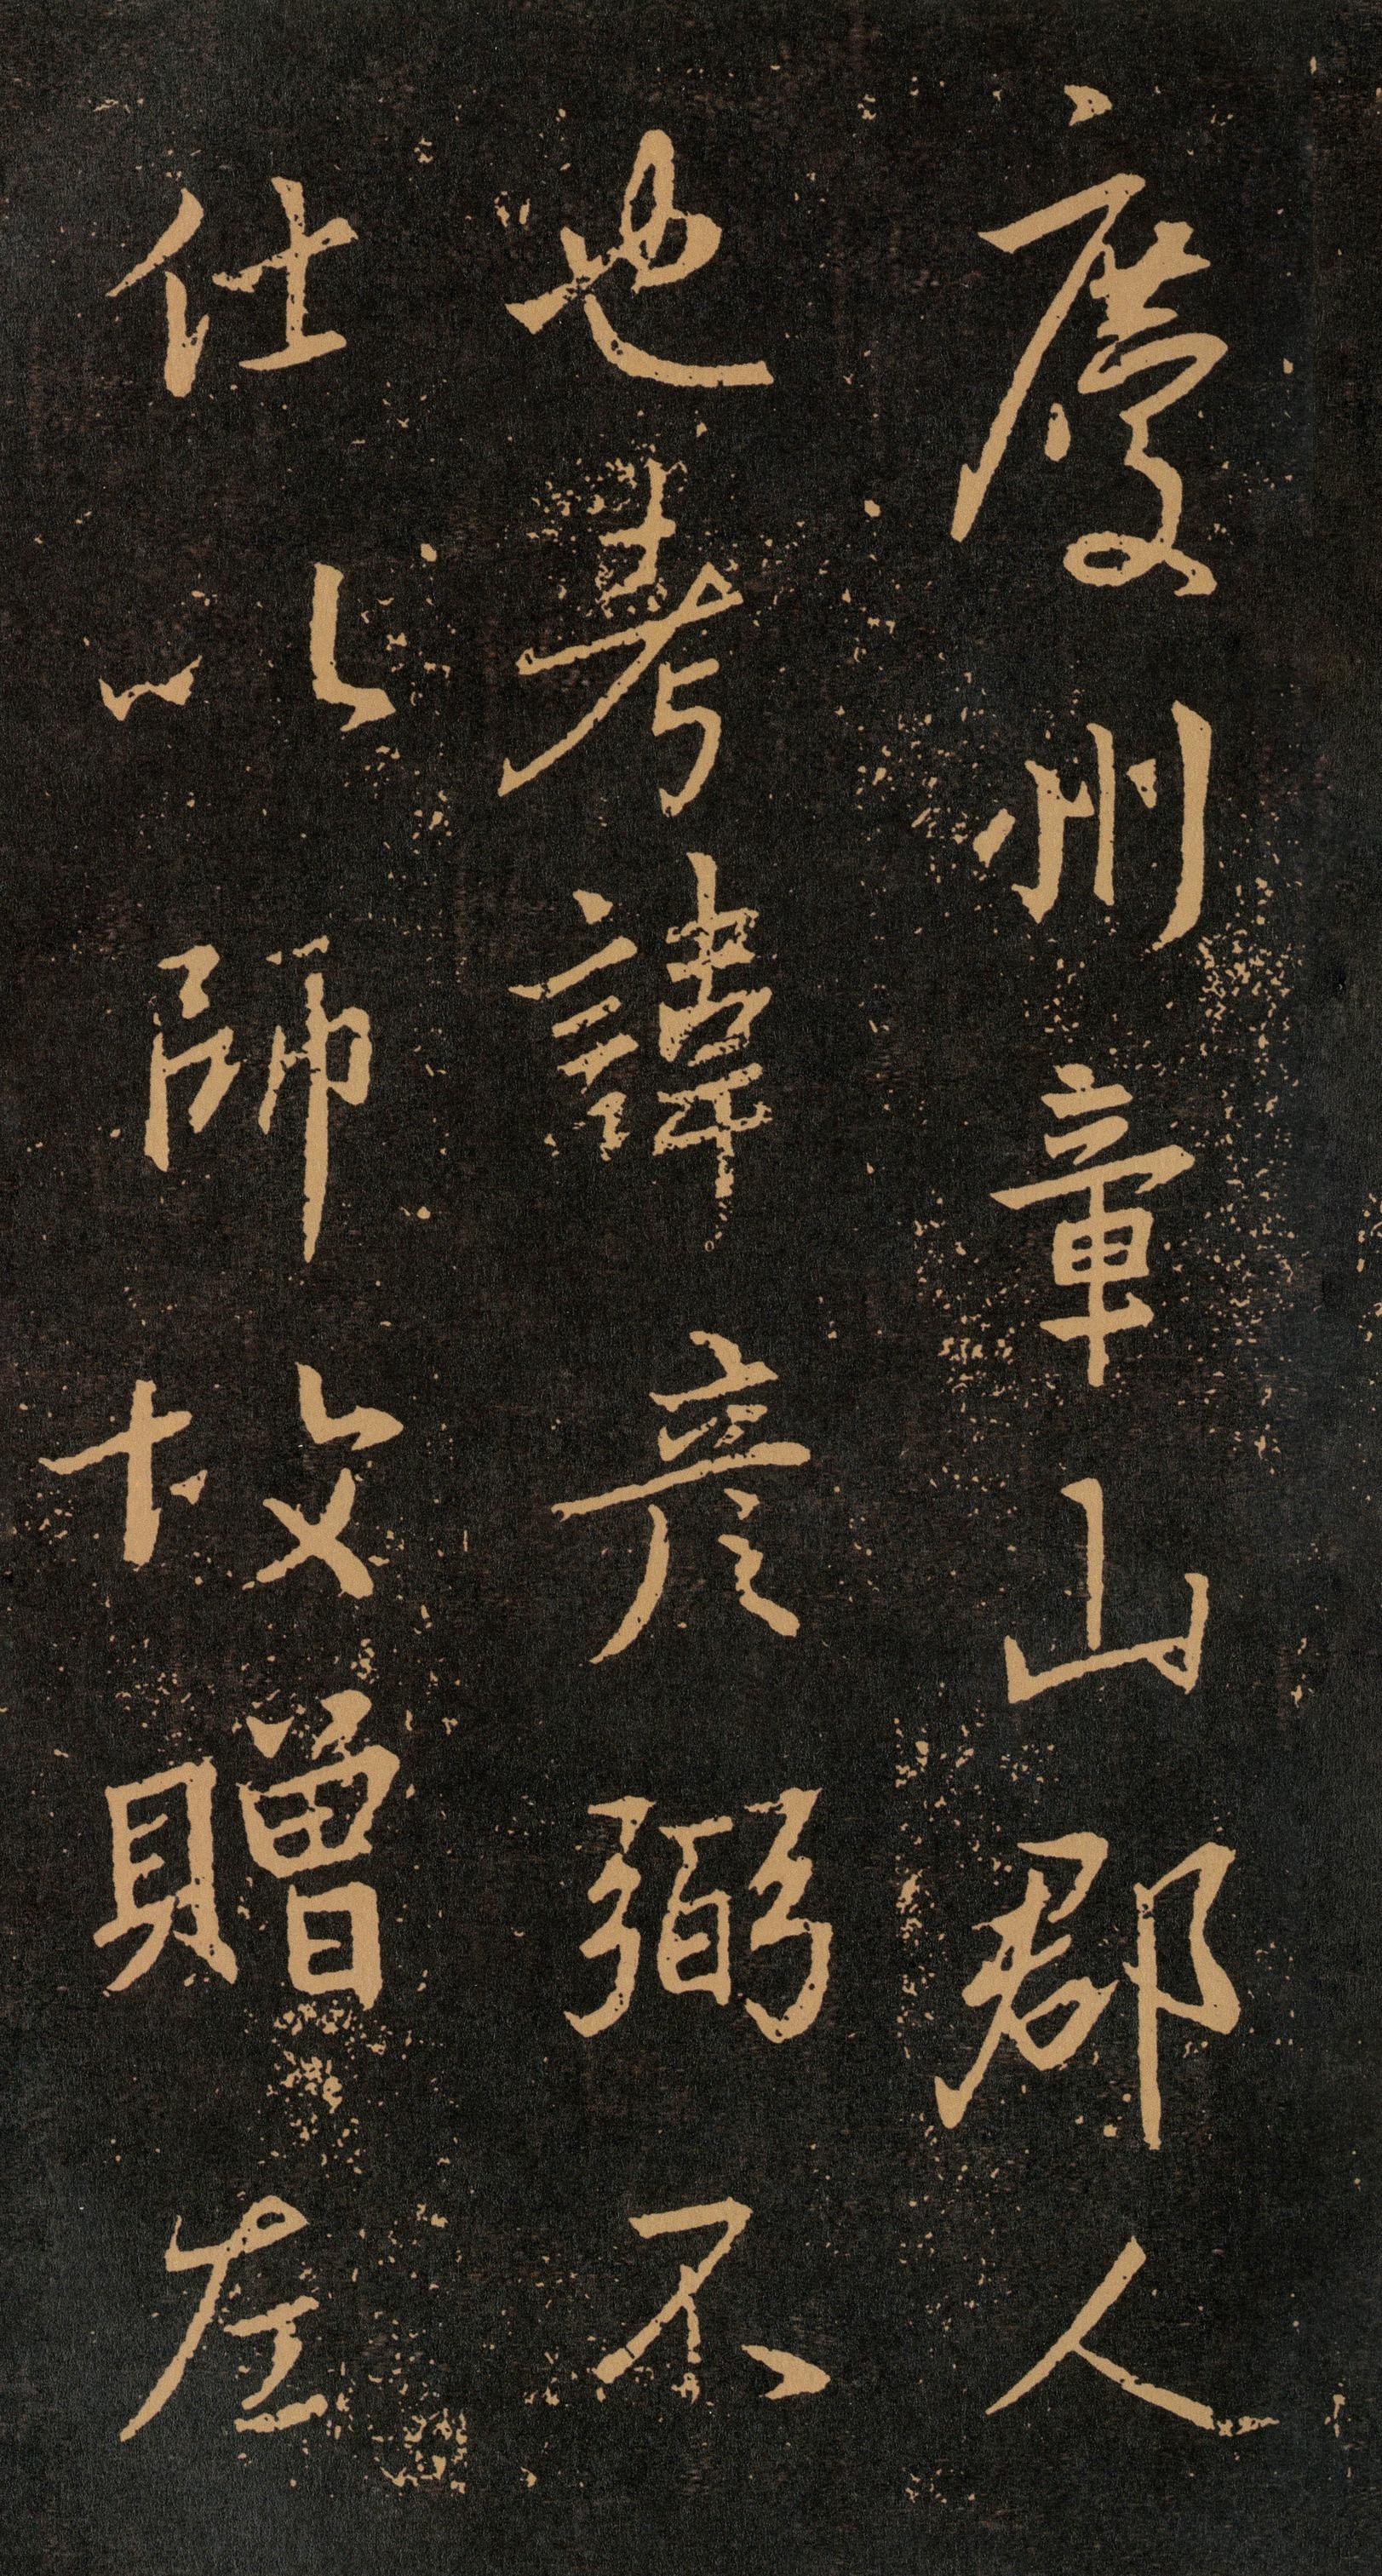 慶州章山郡人
也考諱彥弼不
仕以師故贈左